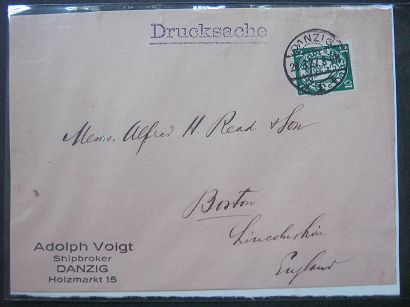 Drucksache
DANZIG
10
Messrs. Alfred H. Read & Son
Boston
Lincolnshire
England
Adolph Voigt
Shipbroker
DANZIG
Holzmarkt 15